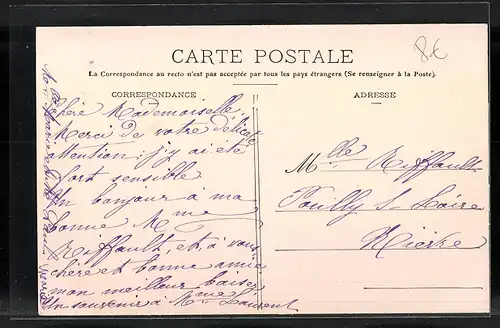 8€
CARTE POSTALE
La Correspondance au recto n'est pas acceptée par tous les pays étrangers (Se renseigner à la Poste).
CORRESPONDANCE
Chère Mademoiselle
Merci de votre délicate
attention; j'y ai été
fort sensible
Un bonjour à ma
bonne Mme
Riffault, et à vous
chère et bonne amie
mon meilleur baiser
Un souvenir à Mme Laurent
ADRESSE
Mlle Riffault
Pouilly S. Loire
Nièvre